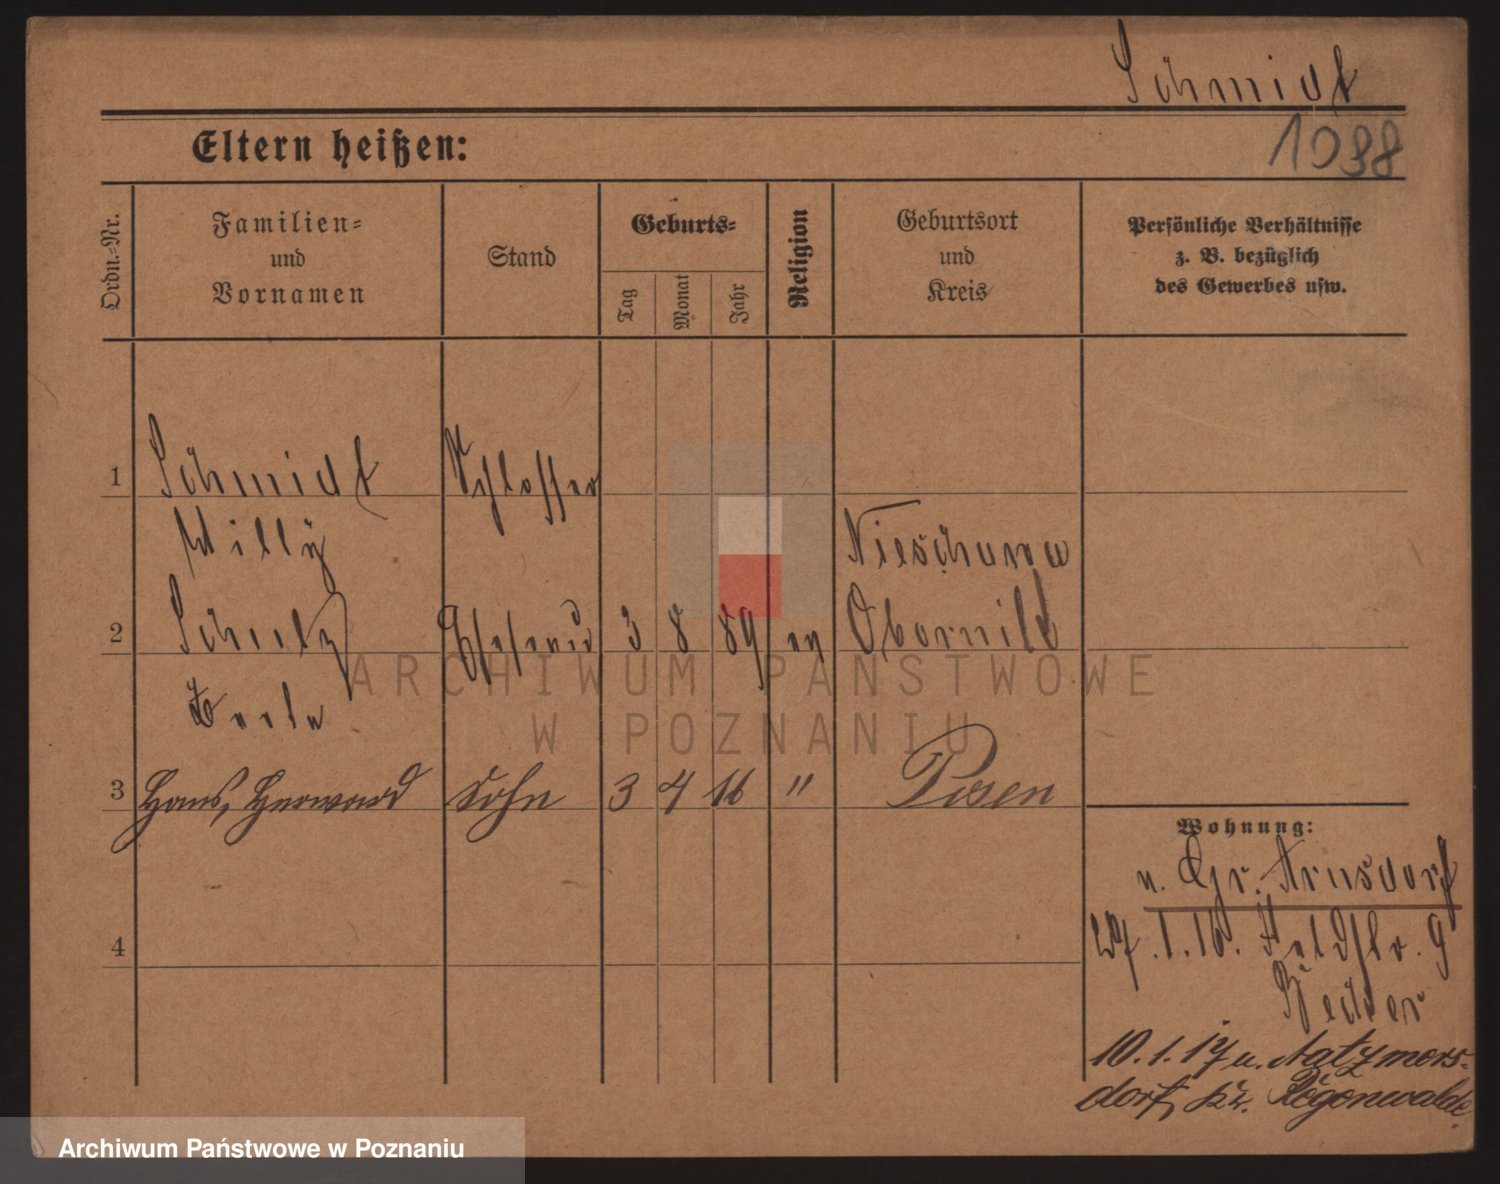 Schmidt
1098
Eltern heißen:
Ordn.-Nr.
Familien-
und
Vornamen
Stand
Geburts-
Tag
Monat
Jahr
Religion
Geburtsort
und
Kreis
Persönliche Verhältnisse
z. B. bezüglich
des Gewerbes usw.
1 Schmidt Schlosser
Willy Nieschawa
2 Schulz Ehefrau 3 8 89 ev Obornik
3 Hans, Herward Sohn 3 4 16 " Posen
Wohnung:
n. Gr. Arnsdorf
27.1.16. Feldstr. 9
Becker
10.1.17 n. Natzmers-
dorf, Kr. Regenwalde
4
ARCHIWUM PAŃSTWOWE
W POZNANIU
Archiwum Państwowe w Poznaniu